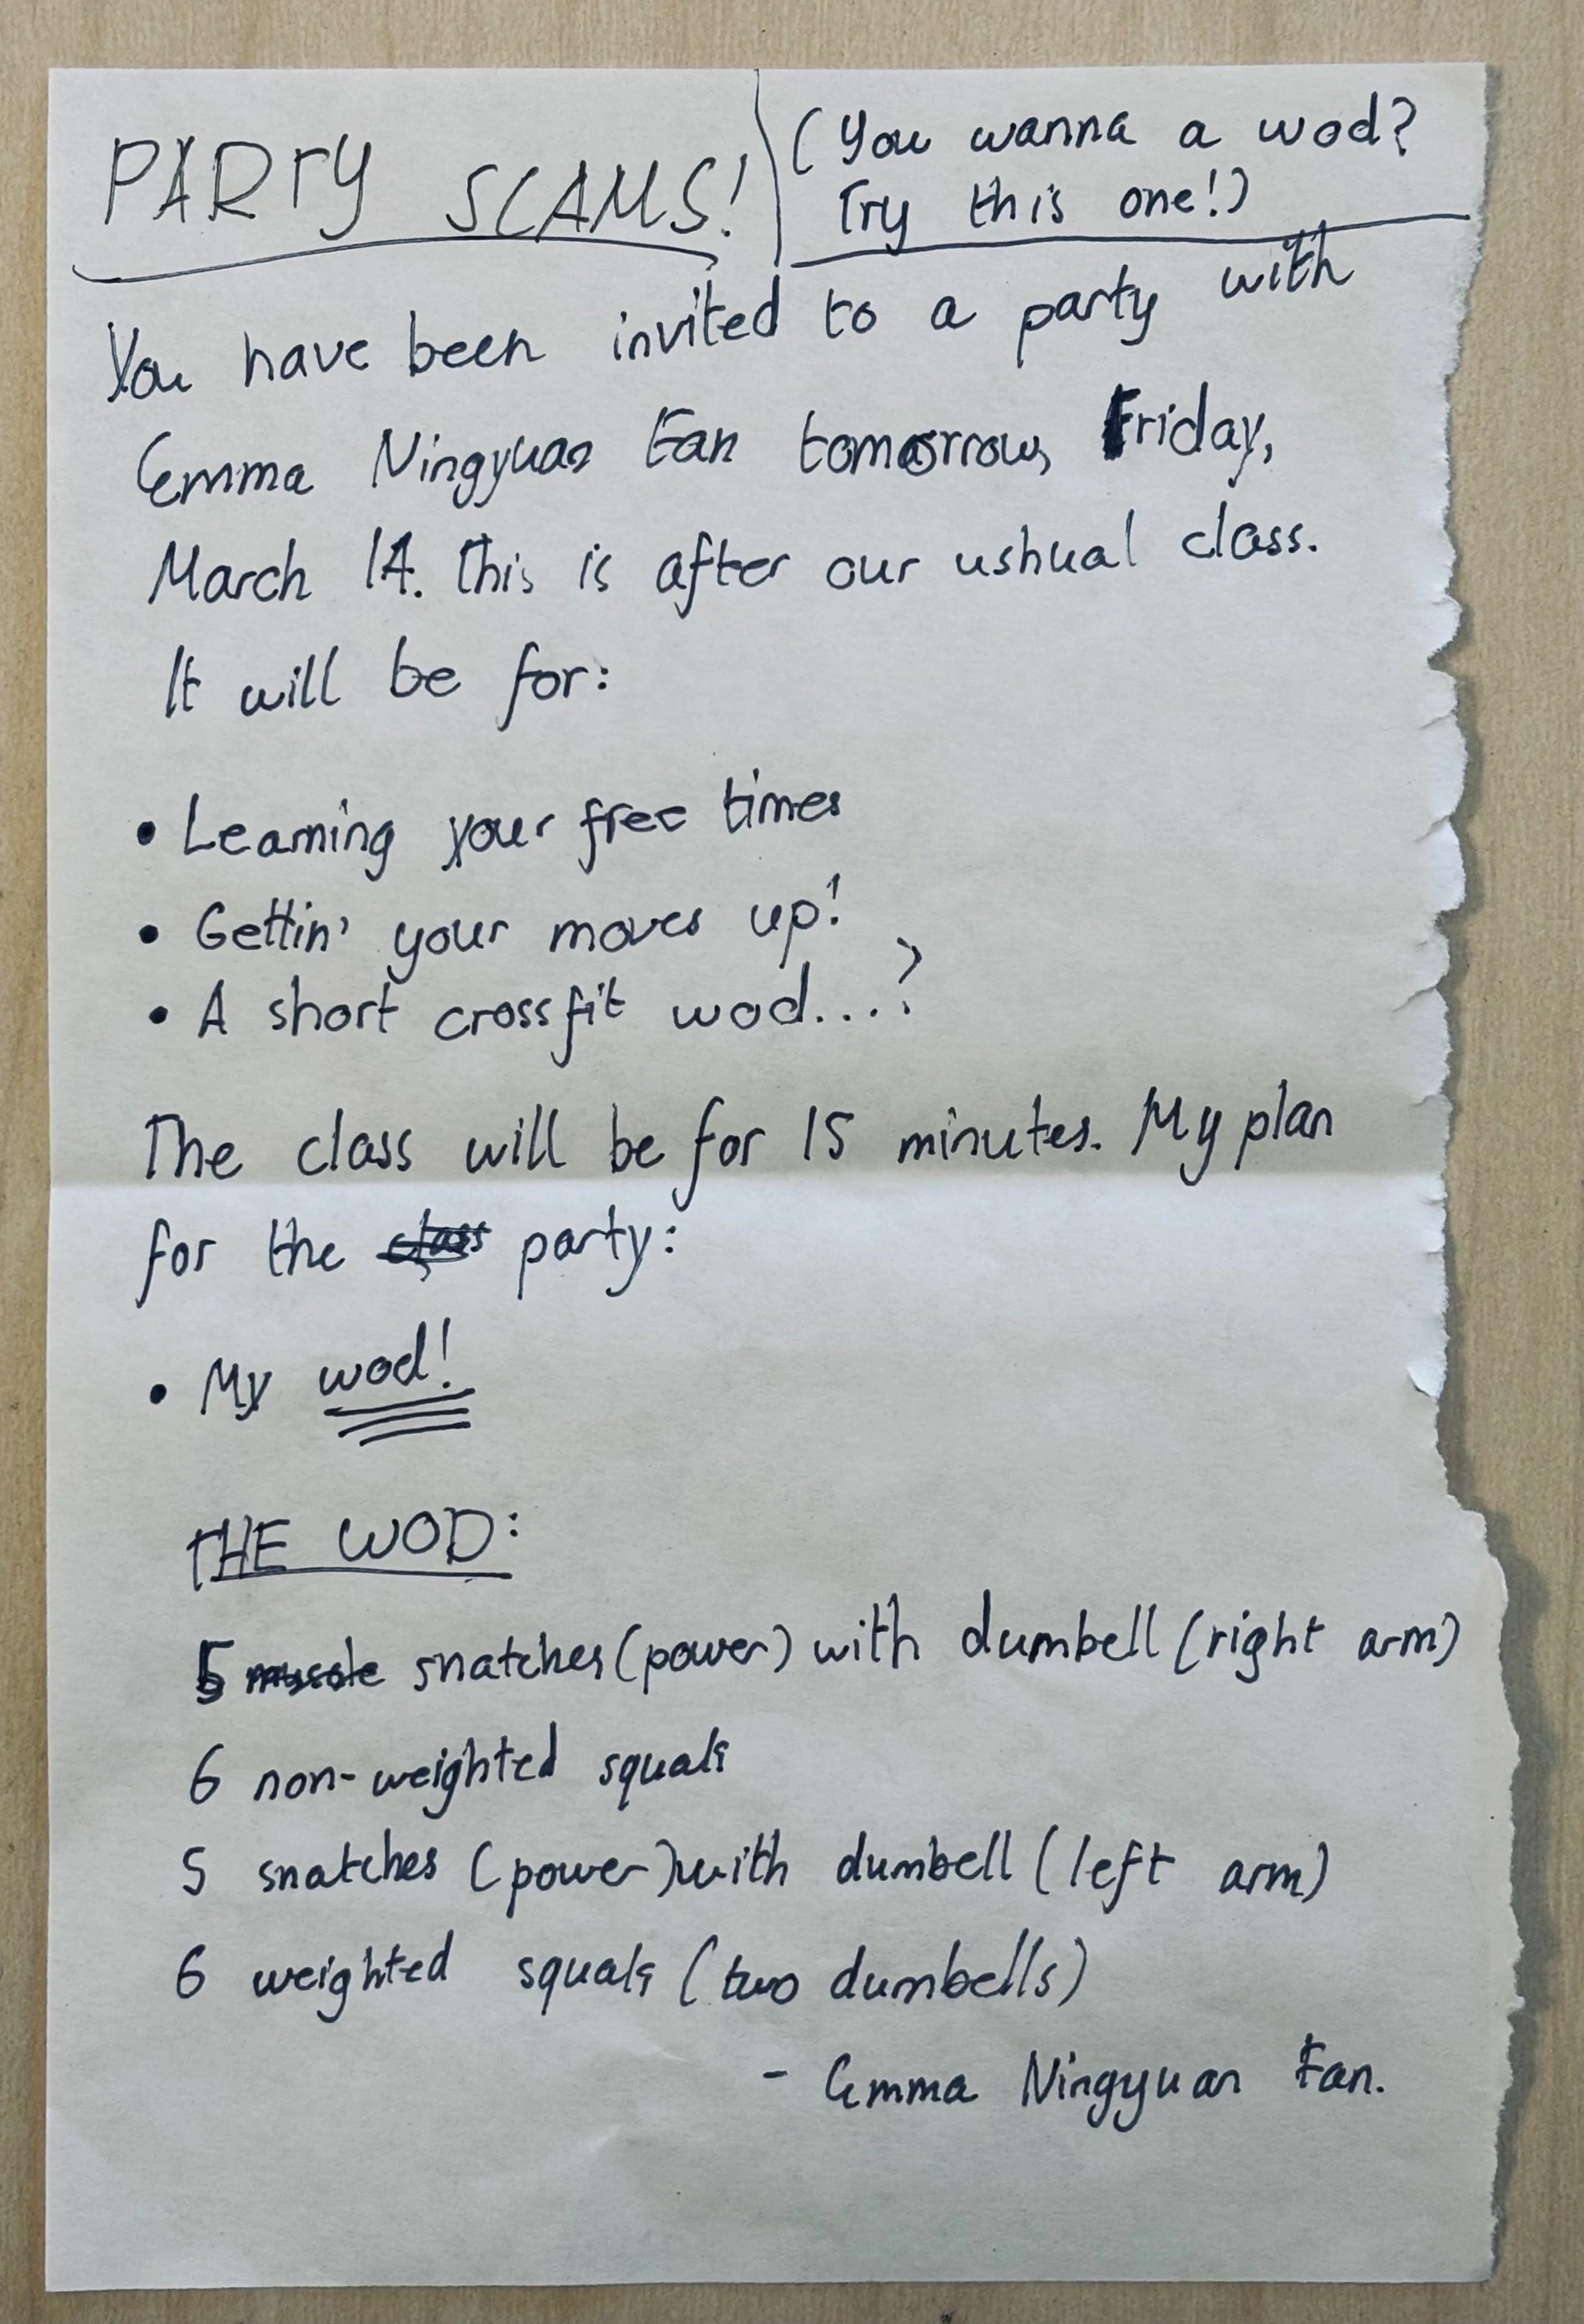 PARTY SCAMS!
(You wanna a wod?
Try this one!)
You have been invited to a party with
Emma Ningyuan Fan tomorrow, Friday,
March 14. This is after our ushual class.
It will be for:
• Learning your free times
• Gettin' your moves up!
• A short crossfit wod....?
The class will be for 15 minutes. My plan
for the class party:
• My wod!
THE WOD:
5 muscle snatches (power) with dumbell (right arm)
6 non-weighted squats
5 snatches (power) with dumbell (left arm)
6 weighted squats (two dumbells)
- Emma Ningyuan Fan.